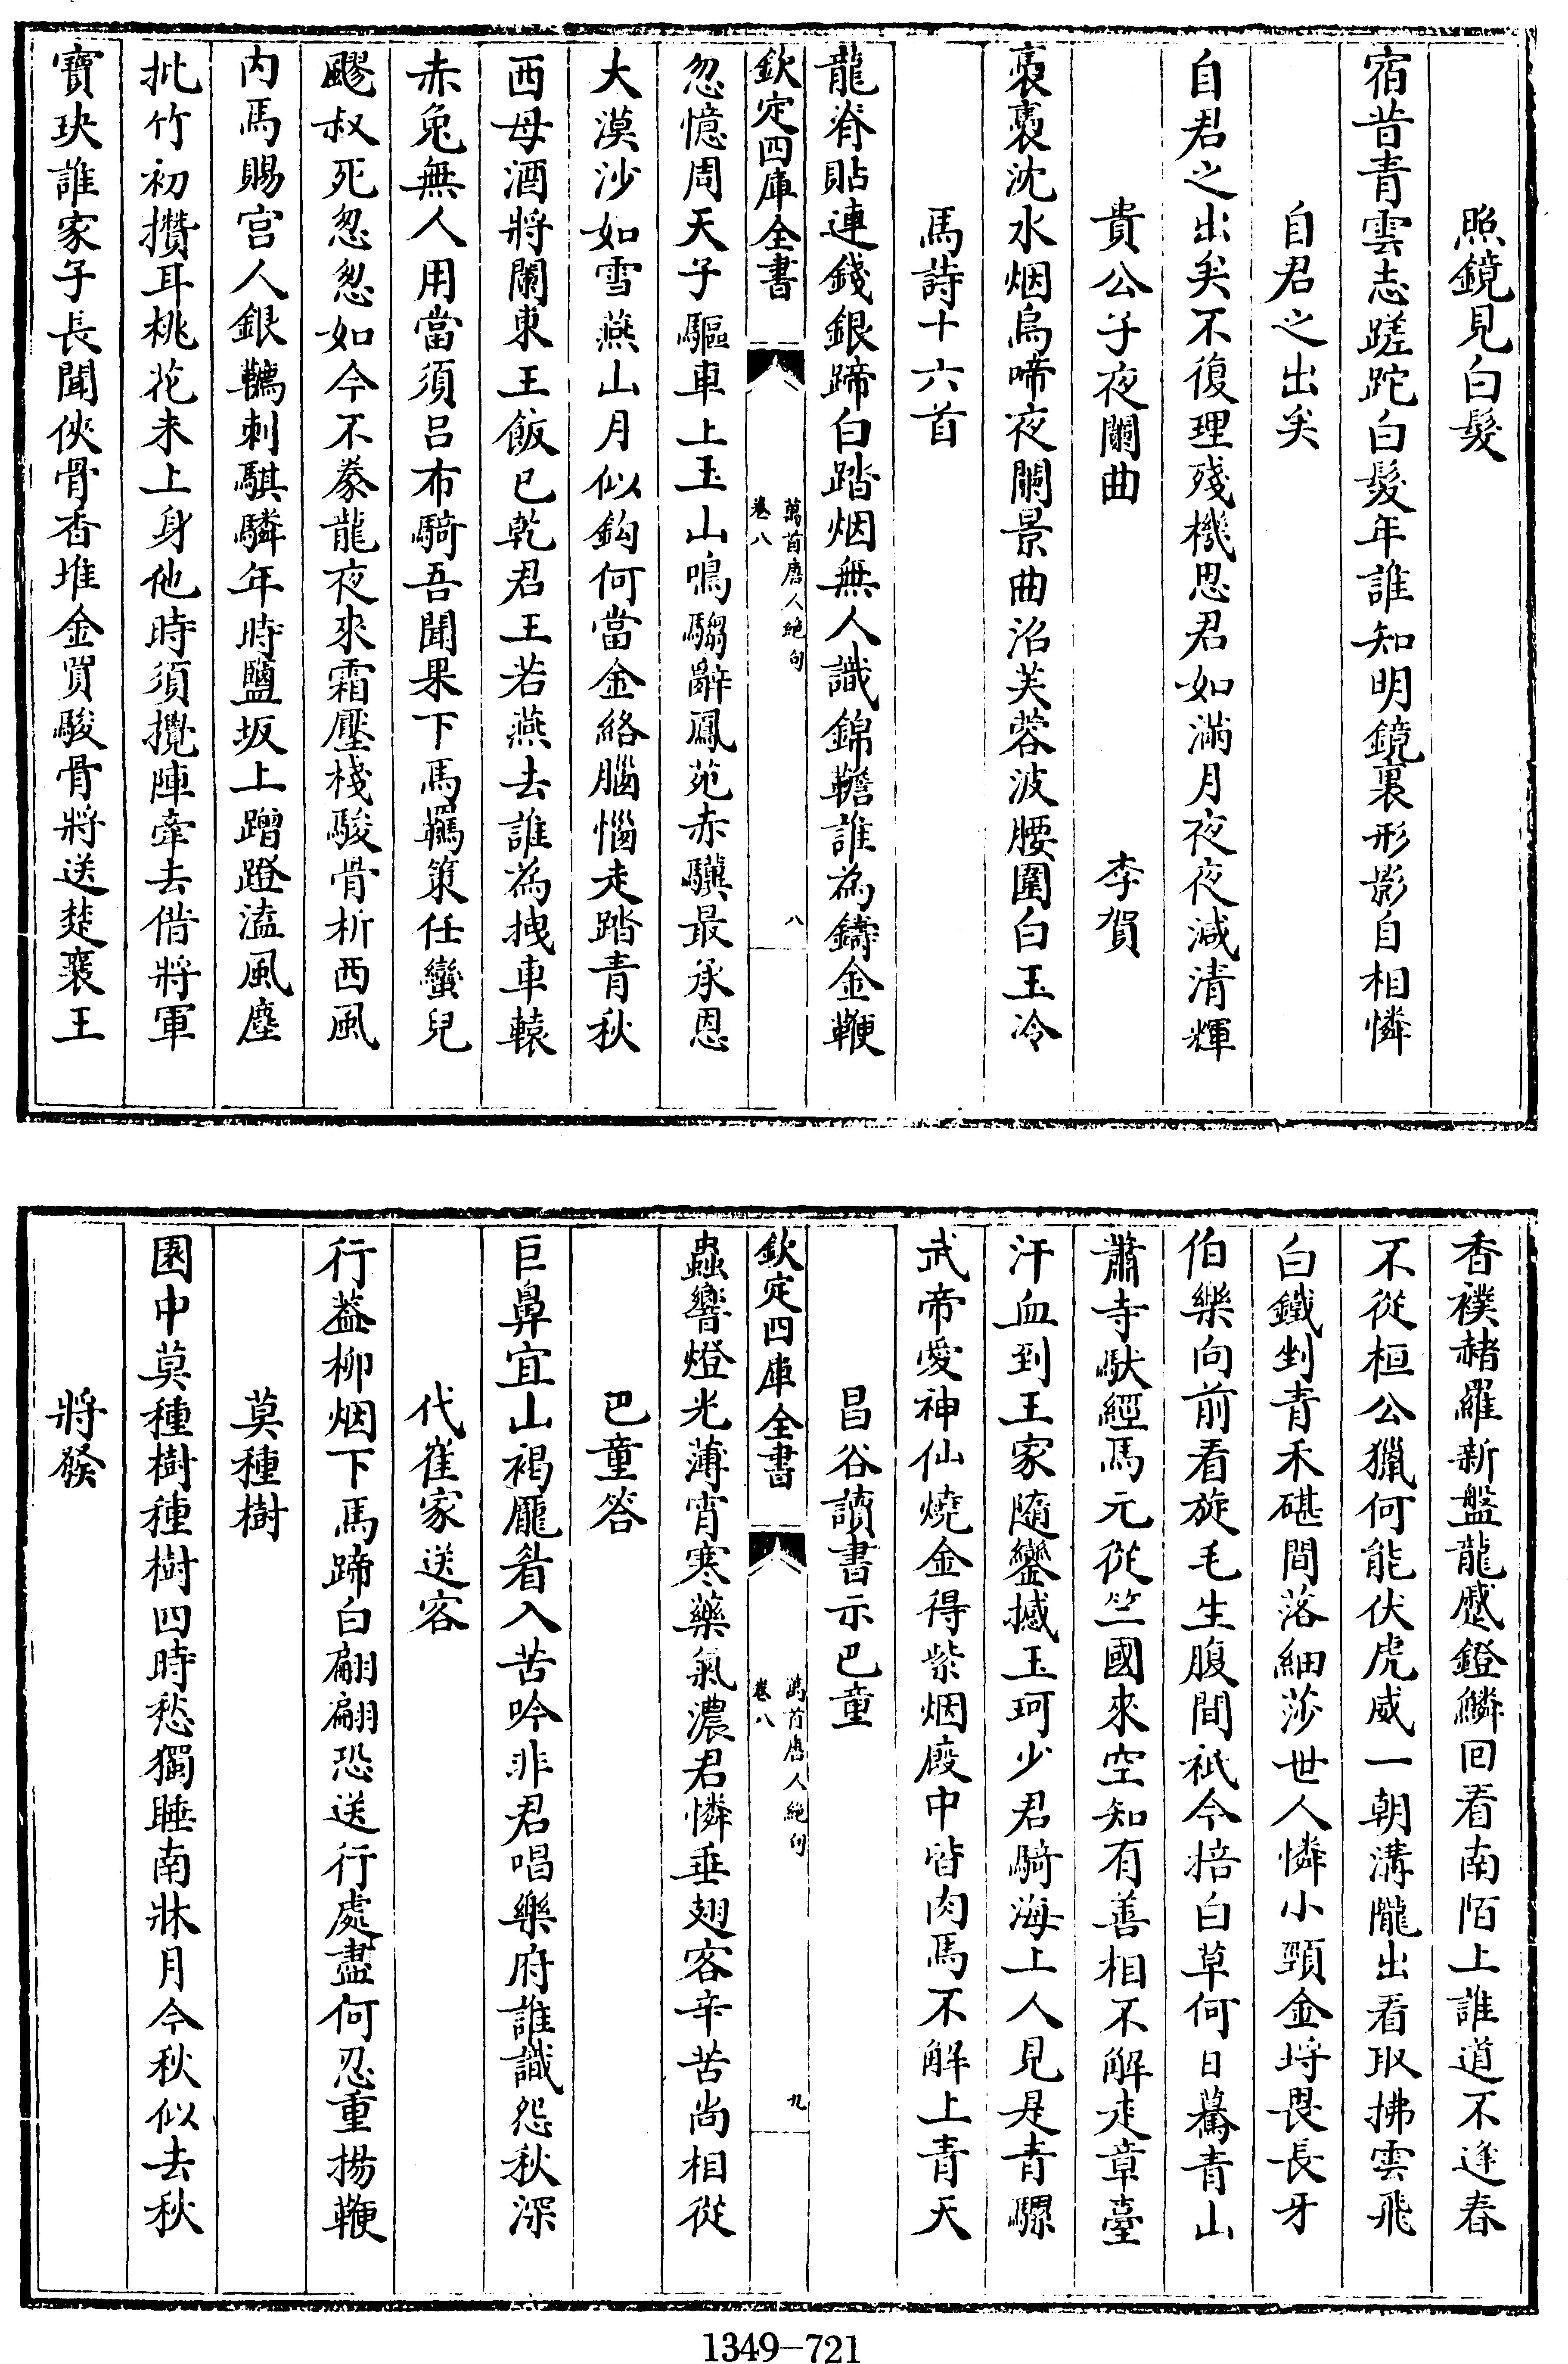 照鏡見白髮
宿昔青雲志蹉跎白髮年誰知明鏡裏形影自相憐
自君之出矣
自君之出矣不復理殘機思君如滿月夜夜減清輝
貴公子夜闌曲 李賀
裊裊沈水烟烏啼夜闌景曲沼芙蓉波腰圍白玉冷
馬詩十六首
龍脊貼連錢銀蹄白踏烟無人識錦韂誰為鑄金鞭
欽定四庫全書 萬首唐人絶句 卷八 八
忽憶周天子驅車上玉山鳴騶辭鳳苑赤驥最承恩
大漠沙如雪燕山月似鈎何當金絡腦惱走踏青秋
西母酒將闌東王飯已乾君王若燕去誰為拽車轅
赤兔無人用當須吕布騎吾聞果下馬羈策任蠻兒
飂叔死忽忽如今不豢龍夜來霜壓棧駿骨析西風
内馬賜宫人銀韉刺騏驎年時鹽坂上蹭蹬溘風塵
批竹初攢耳桃花未上身他時須攪陣牽去借將軍
寶玦誰家子長聞俠骨香堆金買駿骨將送楚襄王
香襆赭羅新盤龍蹙鐙鱗回看南陌上誰道不逢春
不從桓公獵何能伏虎威一朝溝隴出看取拂雲飛
白鐵剉青禾碪間落細莎世人憐小頸金埒畏長牙
伯樂向前看旋毛生腹間祇今掊白草何日驀青山
蕭寺馱經馬元從竺國來空知有善相不解走章臺
汗血到王家隨鑾撼玉珂少君騎海上人見是青騾
武帝愛神仙燒金得紫烟廄中皆肉馬不解上青天
昌谷讀書示巴童
欽定四庫全書 萬首唐人絶句 卷八 九
蟲響燈光薄宵寒藥氣濃君憐垂翅客辛苦尚相從
巴童答
巨鼻宜山褐龎眉入苦吟非君唱樂府誰識怨秋深
代崔家送客
行葢柳烟下馬蹄白翩翩恐送行處盡何忍重揚鞭
莫種樹
園中莫種樹種樹四時愁獨睡南牀月今秋似去秋
將發
1349-721